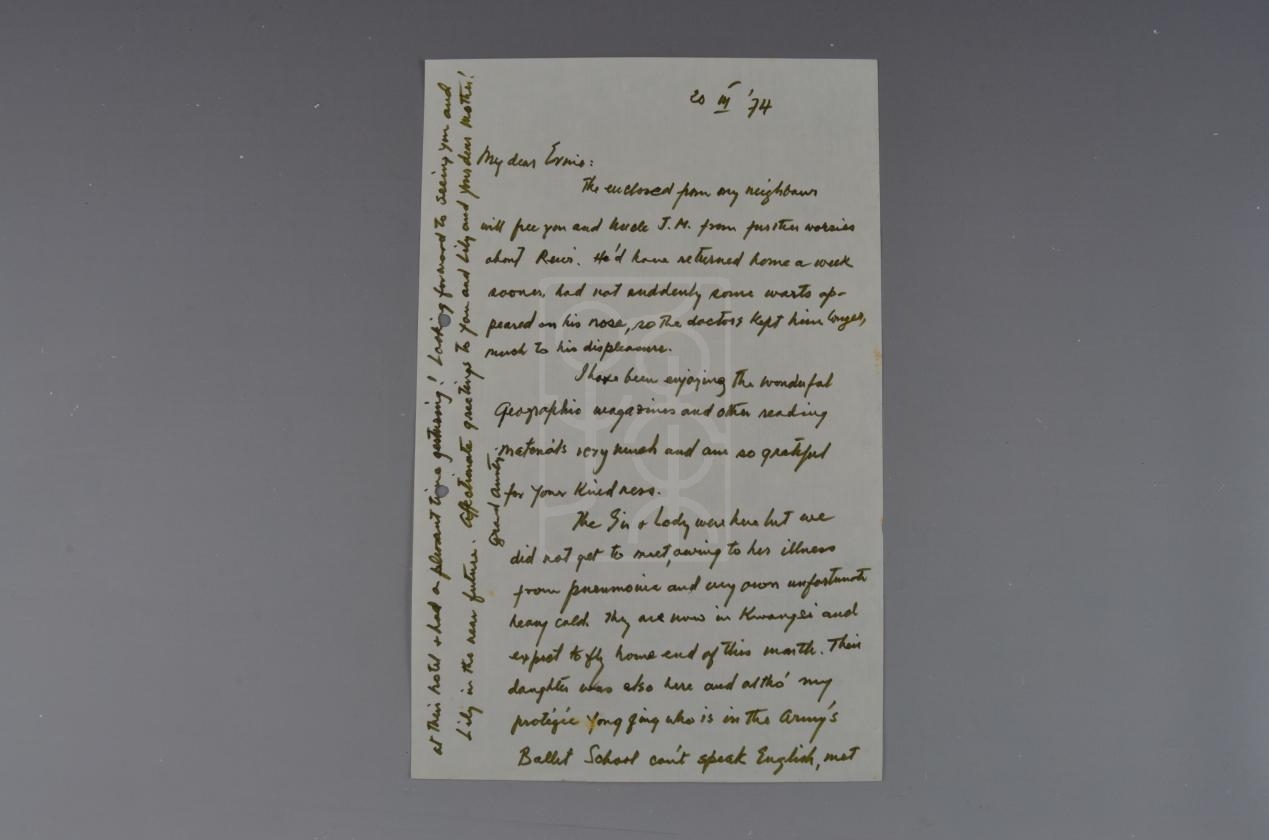 20 III '74
My dear Ernie:
The enclosed from my neighbour
will free you and Uncle J.M. from further worries
about Rewi. He'd have returned home a week
sooner, had not suddenly some warts ap-
peared on his nose, so the doctors kept him longer,
much to his displeasure.
I have been enjoying the wonderful
Geographic magazines and other reading
materials very much and am so grateful
for your kindness.
The Sir & Lady were here but we
did not get to meet, owing to her illness
from pneumonia and my own unfortunate
heavy cold. They are now in Kwangsi and
expect to fly home end of this month. Their
daughter was also here and altho' my
protégée Yong Ping who is in the Army's
Ballet School can't speak English, met
at their hotel & had a pleasant time gesturing! Looking forward to seeing you and
Lily in the near future. Affectionate greetings to you and Lily and your dear mother!